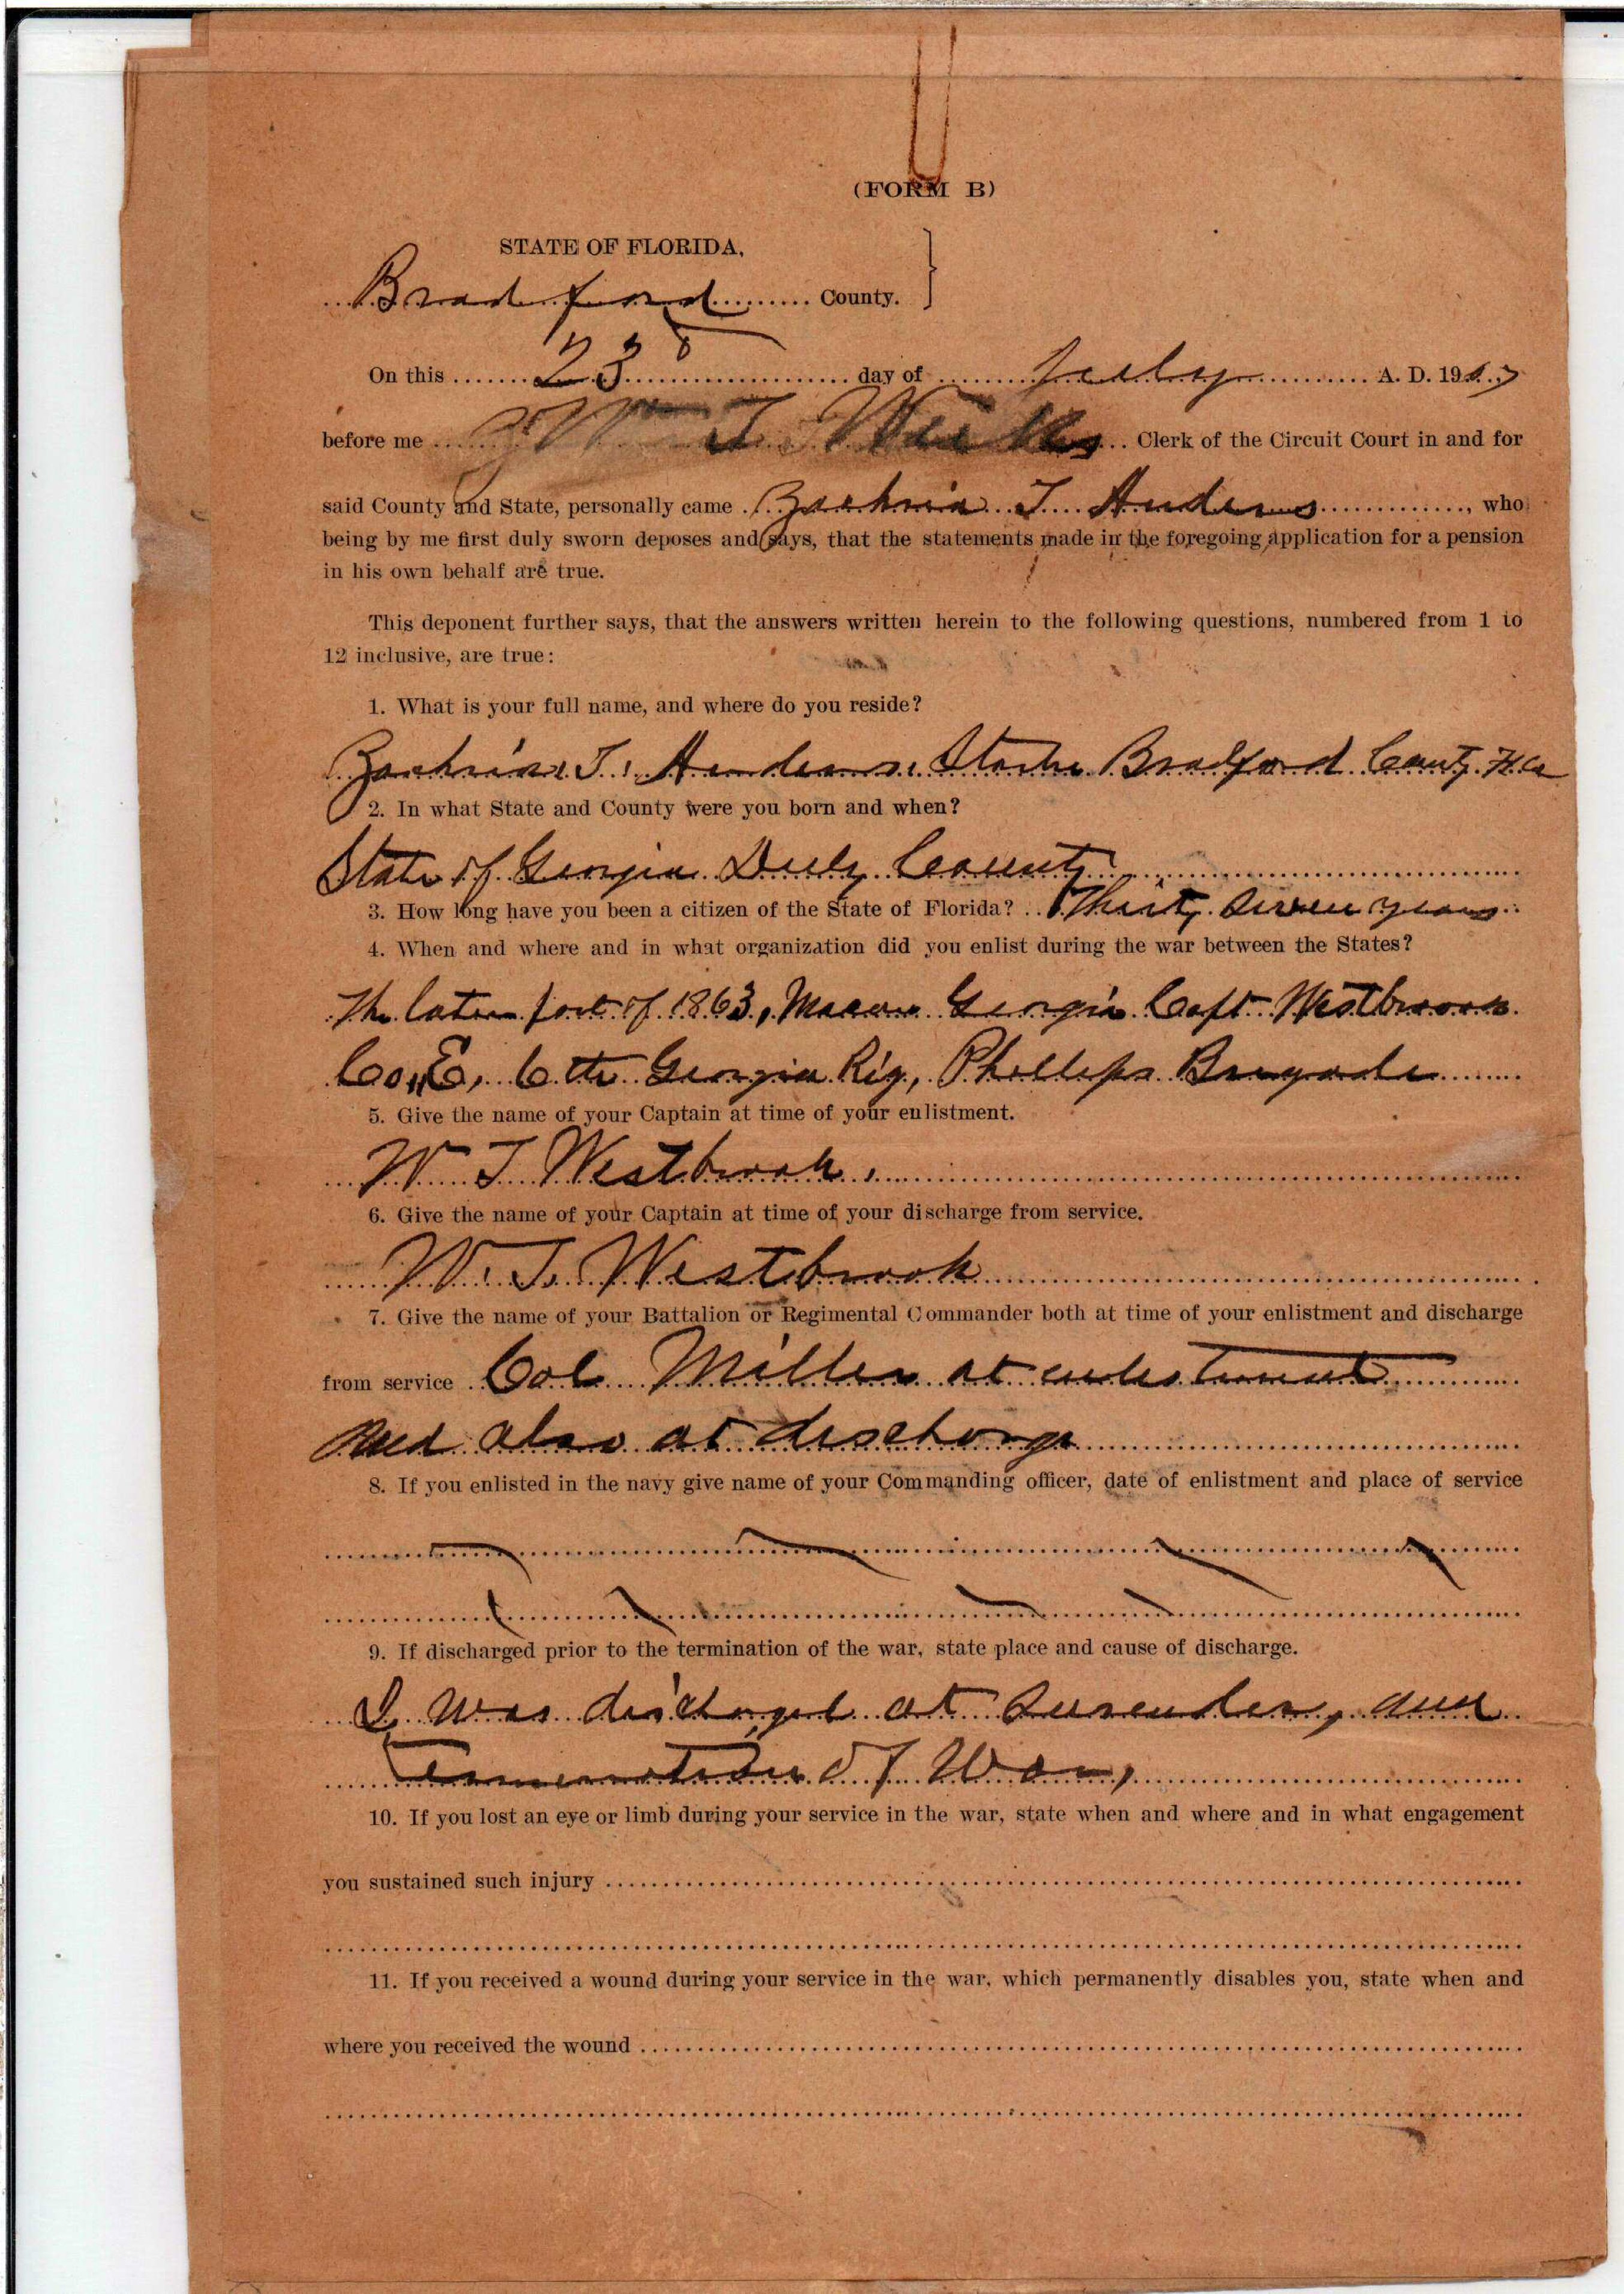 (FORM B)
STATE OF FLORIDA,
Bradford County.
On this 23 day of July A. D. 1907
before me Wm T. Weeks Clerk of the Circuit Court in and for
said County and State, personally came Zachria T. Anders, who
being by me first duly sworn deposes and says, that the statements made in the foregoing application for a pension
in his own behalf are true.
This deponent further says, that the answers written herein to the following questions, numbered from 1 to
12 inclusive, are true:
1. What is your full name, and where do you reside?
Zachria T. Anders. Starke Bradford County Fla
2. In what State and County were you born and when?
State of Georgia Duly County
3. How long have you been a citizen of the State of Florida? Thirty seven years
4. When and where and in what organization did you enlist during the war between the States?
The later part of 1863, Macon Georgia Capt Westbrook
Co, "E, 6th Georgia Rig, Phillips Brigade
5. Give the name of your Captain at time of your enlistment.
W T Westbrook.
6. Give the name of your Captain at time of your discharge from service.
W. T. Westbrook
7. Give the name of your Battalion or Regimental Commander both at time of your enlistment and discharge
from service Col Miller at enlestment
and also at discharge
8. If you enlisted in the navy give name of your Commanding officer, date of enlistment and place of service
9. If discharged prior to the termination of the war, state place and cause of discharge.
I was discharged at surender, and
Termenation of War,
10. If you lost an eye or limb during your service in the war, state when and where and in what engagement
you sustained such injury
11. If you received a wound during your service in the war, which permanently disables you, state when and
where you received the wound